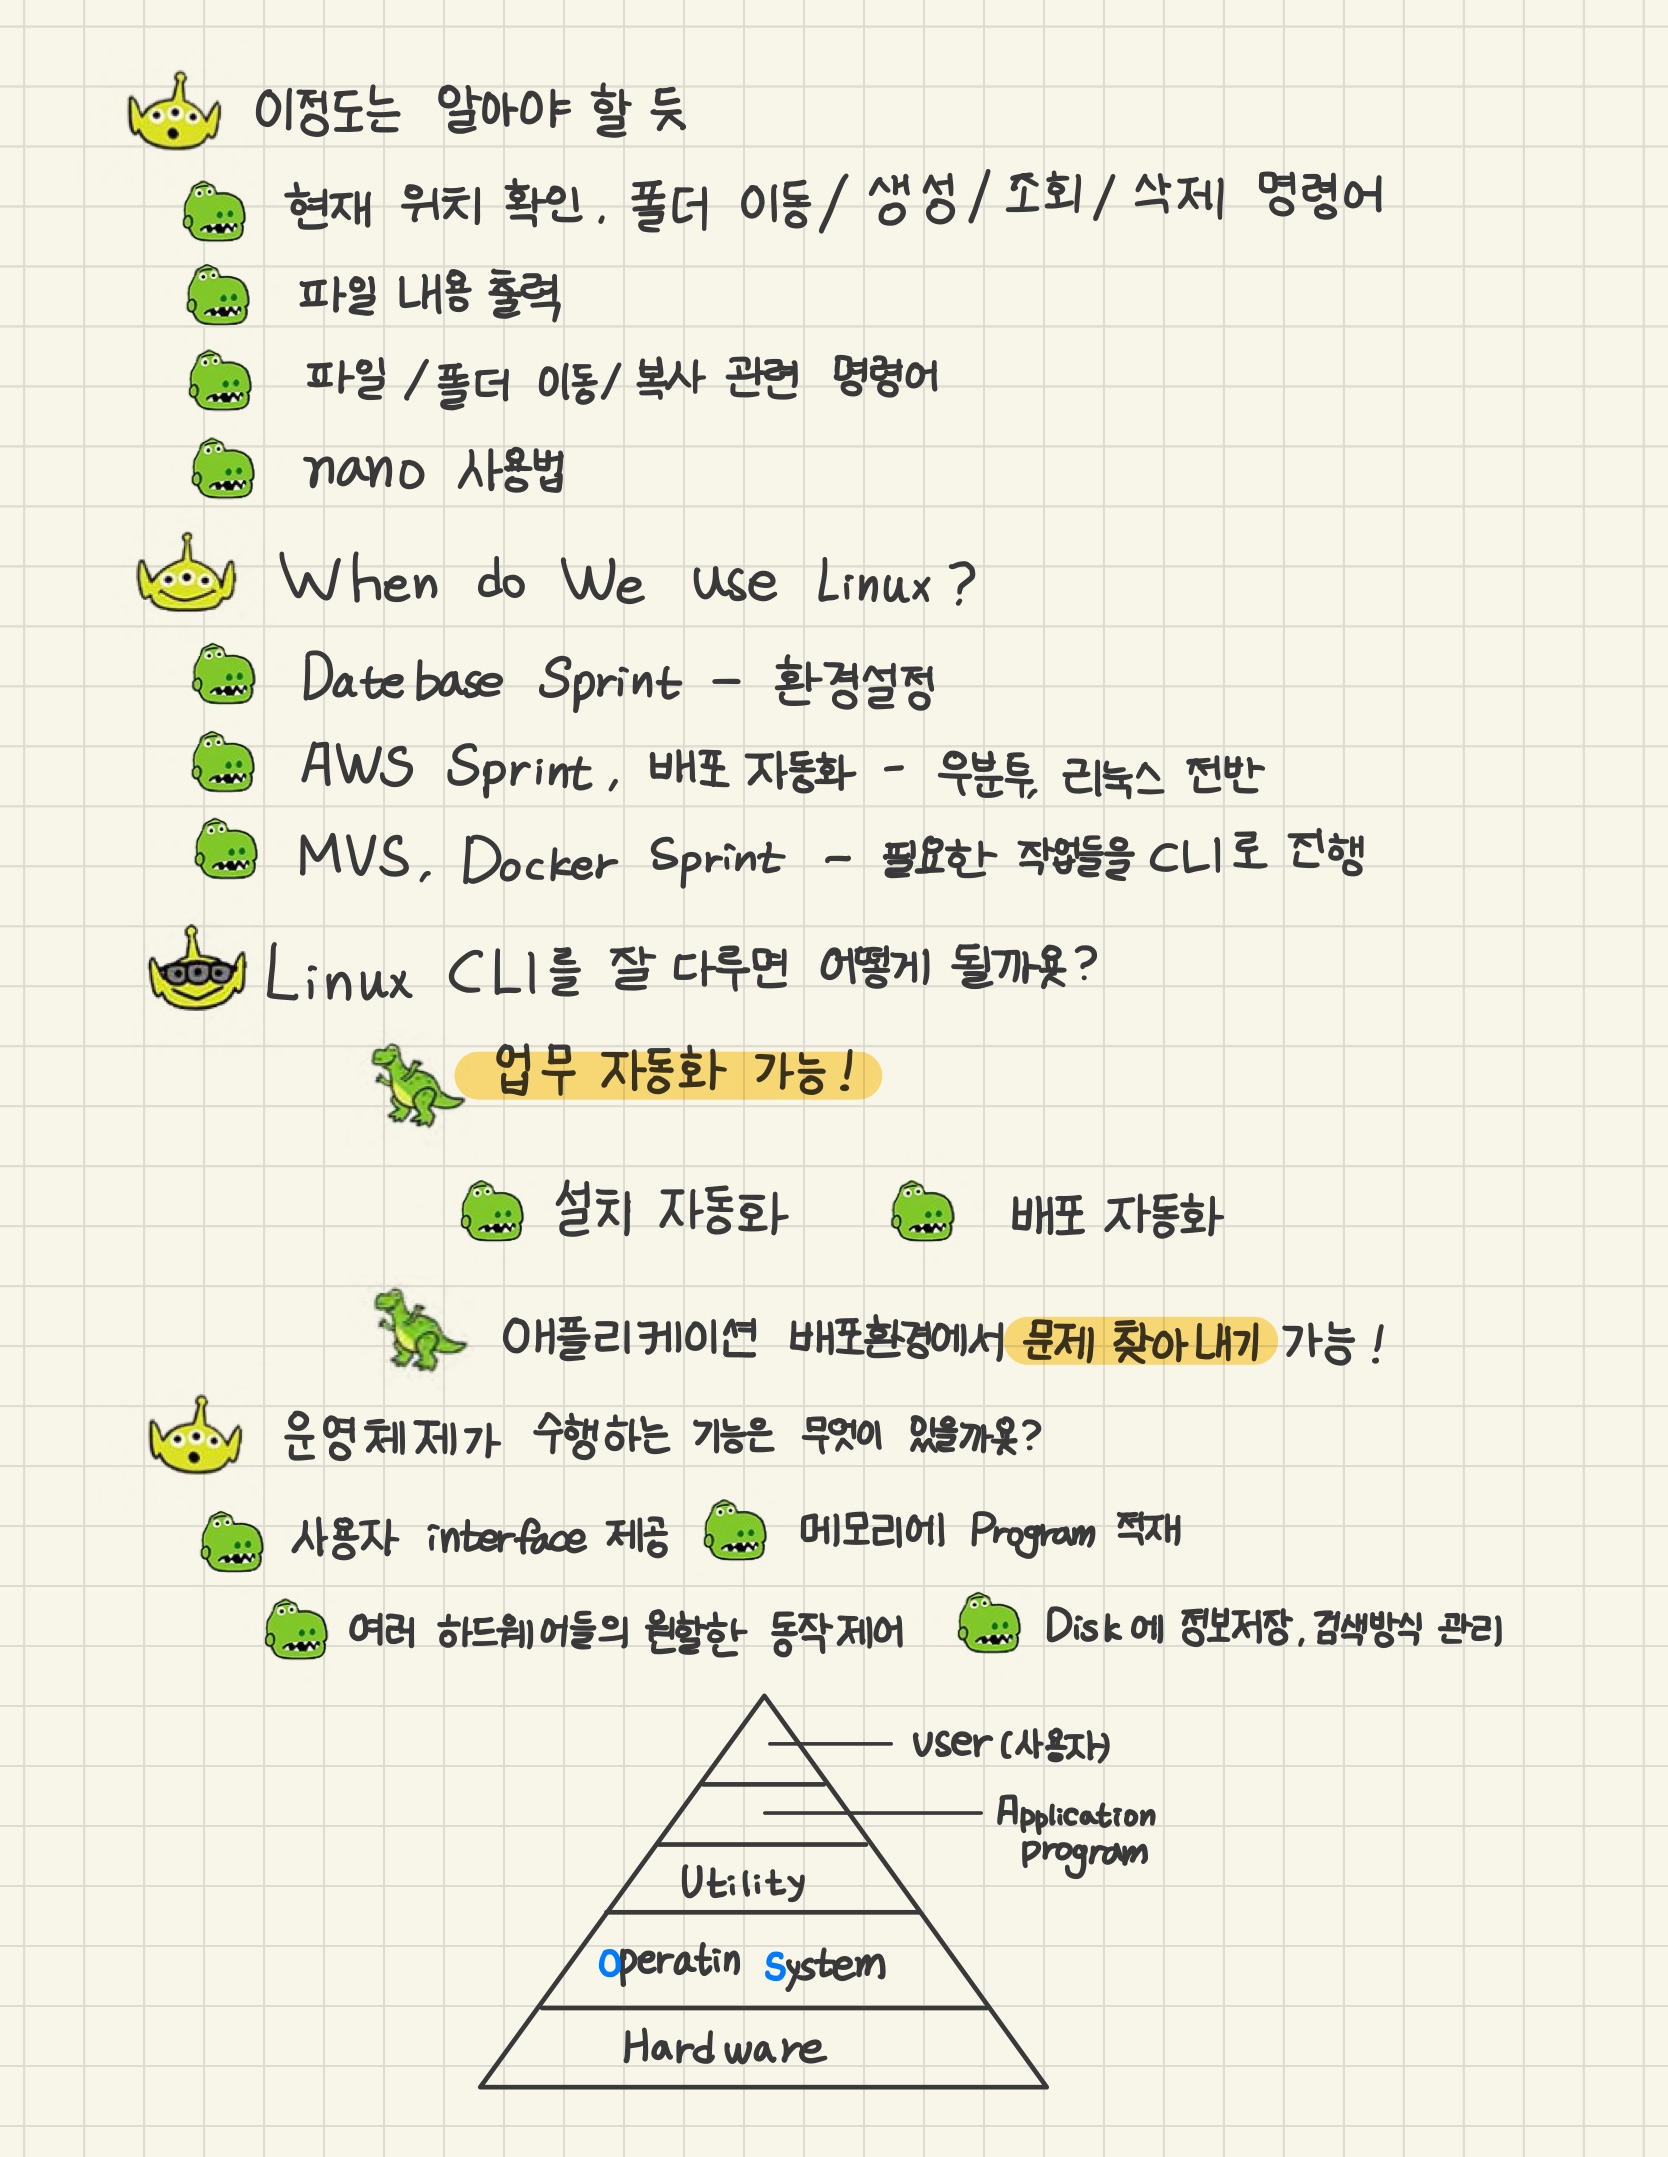 이정도는 알아야 할 듯
현재 위치 확인, 폴더 이동/생성/조회/삭제 명령어
파일 내용 출력
파일/폴더 이동/복사 관련 명령어
nano 사용법
When do We use Linux?
Datebase Sprint - 환경설정
AWS Sprint, 배포 자동화 - 우분투, 리눅스 전반
MVS, Docker Sprint - 필요한 작업들을 CLI로 진행
Linux CLI를 잘 다루면 어떻게 될까욧?
업무 자동화 가능!
설치 자동화 배포 자동화
애플리케이션 배포환경에서 문제 찾아내기 가능!
운영체제가 수행하는 기능은 무엇이 있을까욧?
사용자 interface 제공 메모리에 Program 적재
여러 하드웨어들의 원활한 동작제어 Disk에 정보저장, 검색방식 관리
user(사용자)
Application
program
Utility
Operatin System
Hardware